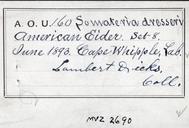 A. O. U. 160 Somateria dresseri
American Eider. Set-8.
June 1893. Cape Whipple, Lab.
Lambert Dicks,
Coll.
MVZ 2690